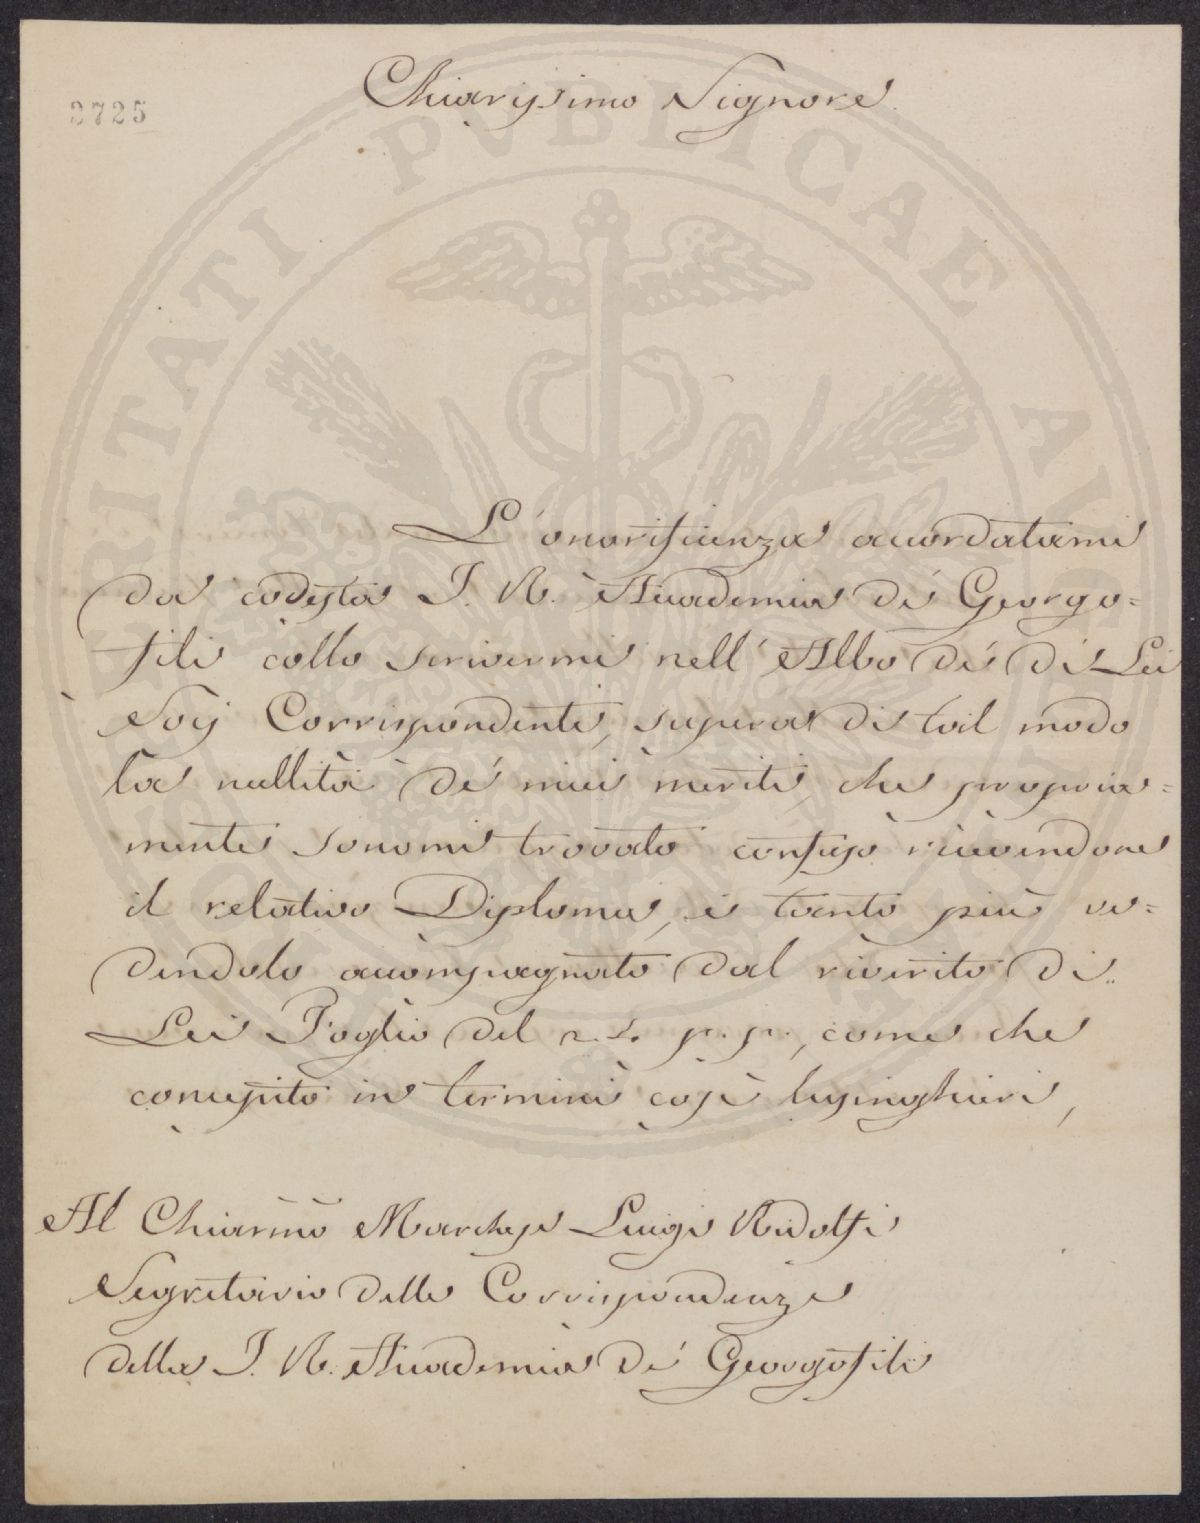 2725
Chiarissimo Signore
L'onorificenza accordatami
da codesta I. R. Accademia de' Georgo=
fili collo scrivermi nell'Albo de' di Lei
Socj Corrispondenti, supera di tal modo
la nullità de' miei meriti, che propria=
mente sonomi trovato confuso ricevendone
il relativo Diploma, e tanto più ve=
dendolo accompagnato dal riverito di
Lei Foglio del 24 p. p., come che
concepito in termini così lusinghieri,
Al Chiarmo Marchese Luigi Ridolfi
Segretario delle Corrispondenze
della I. R. Accademia de' Georgofili
PVBLICAE